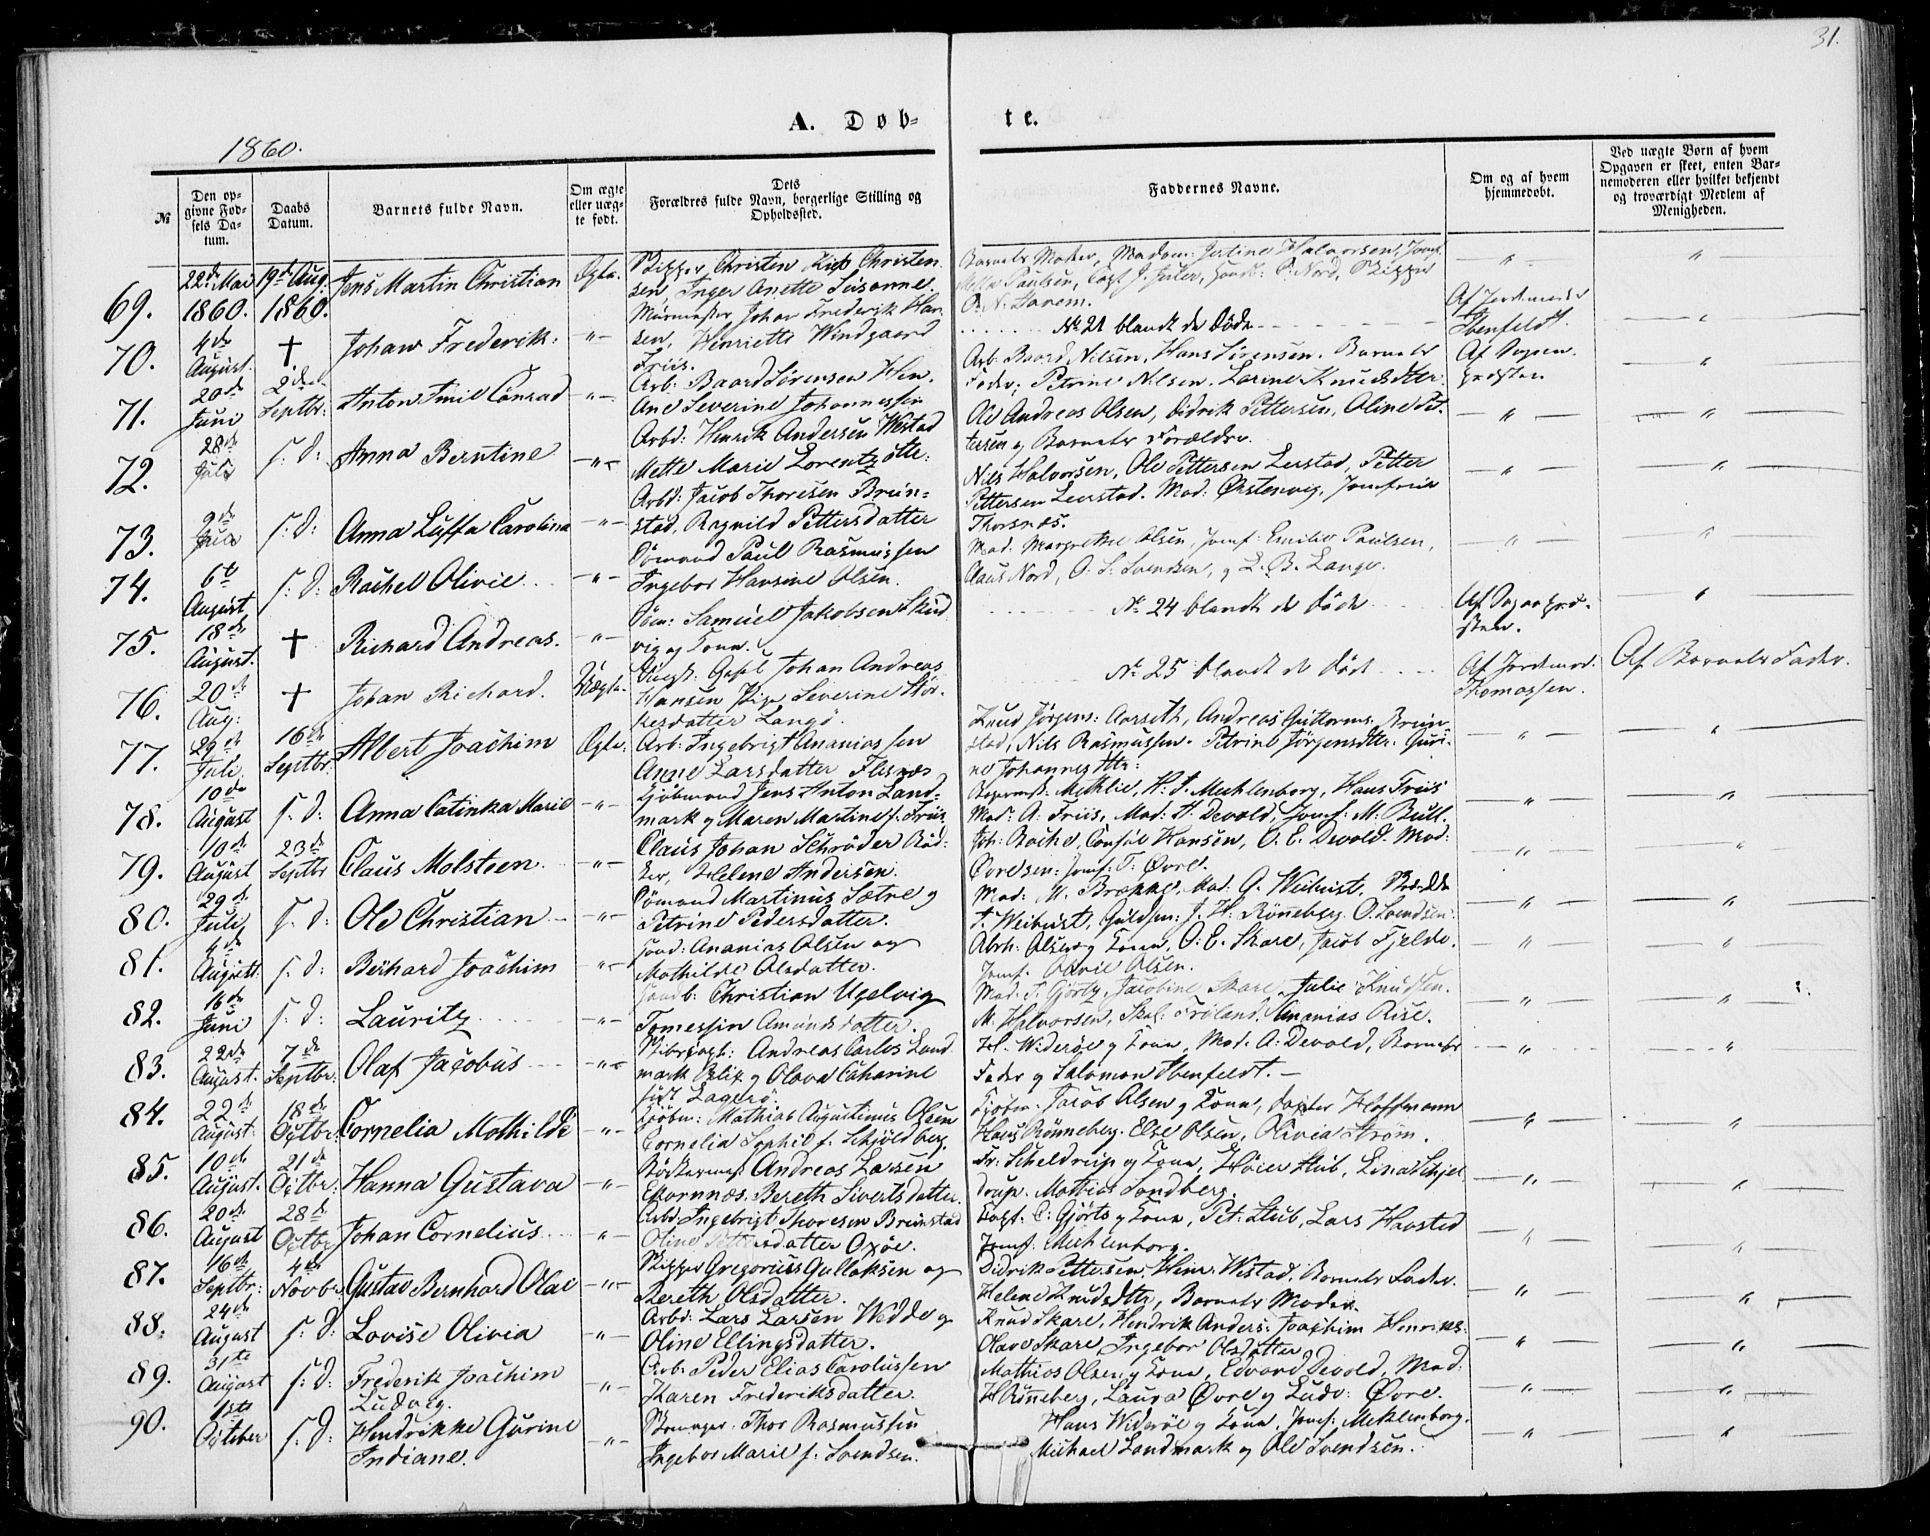 31.
A. Døb-
te.
1860.
№
Den op-
givne Fød-
sels Da-
tum.
Daabs
Datum.
Barnets fulde Navn.
Om ægte
eller uæg-
te født.
Dets
Forældres fulde Navn, borgerlige Stilling og
Opholdssted.
Faddernes Navne.
Om og af hvem
hjemmedøbt.
Ved uægte Børn af hvem
Opgaven er skeet, enten Bar-
nemoderen eller hvilket bekjendt
og troværdigt Medlem af
Menigheden.
69. 22de Mai 1860. 19de Aug. 1860. Jens Martin Christian Ægte.
Skipper Christen Christen-
sen, Inger Anette Susanne.
Barnets Moder, Madam Justine Halvorsen,
Paulsen, Nord, Skipper
70. 4de August. † Johan Frederik. "
Murmester Johan Frederik Han-
sen, Henriette Windgaard
Friis.
No 21 blandt de døde
Af Jordemoder
Ibenfeldt.
71. 20de Juni 2den Septbr. Anton Emil Conrad "
Arb: Baard Sørensen
Ane Severine Johannessen
Arb: Baard Nilsen, Hans Sørensen. Barnets
Fader, Petrine Nilsen. Larine Knudsdtter
Af Sogne-
præsten
72. 28de Juli s: d: Anna Berntine "
Arbd: Henrik Andersen Westad
Mette Marie Lorentz
Ole Andreas Olsen, Didrik Pettersen, Oline Pet-
tersen og Barnets Forældre.
73. s: d: Anna Luffa Carolina "
Arbd: Jacob Thoresen Brun-
stad, Ragnild Pettersdatter
Nils Halvorsen, Ole Pettersen Leerstad, Petter
Pettersen Leerstad. Mad: Jomfrue
Thorsnæs.
74. 6te August s: d: Rachel Olivie "
Sømand Paul Rasmussen
Ingebor Hansine Olsen.
Mad: Margrethe Olsen, Jomf: Emilie Paulsen,
Claus Nord, O. S. Svendsen, og L. B. Lange.
75. 18de August. † Richard Andreas. "
Søm: Samuel Jakobsen
vig og Kone.
No 24 blandt de døde
Af Sognepræ-
sten.
76. 20de Aug: † Johan Richard. Uægte.
Johan Andreas
Hansen Pige Severine
Langö.
No 25 blandt de døde
Af Jordemod.
Thomassen.
Af Barnets Fader.
77. 29de Juli 16de Septbr. Albert Joachim Ægte.
Arb: Ingebrigt Ananiassen
Anne Larsdatter Flisnæs
Knud Jørgens: Aarseth, Andreas Guttorms: Brun-
stad, Nils Rasmussen. Petrine Jørgensdtter. Guri-
ne Johannesdtter:
78. 10de August s: d: Anna Catinka Marie "
Kjøbmand Jens Anton Land-
mark og Maren Martine f. Friis
H. J. Mechlenborg, Hans Friis
Mad: A: Friis, Mad: H. Devold, Jomf: M: Bull.
79. 10de August 23de Septbr Claus Molsteen. "
Claus Johan Schröder Rød-
ker, Helene Andersen.
Consul Hansen, O. E. Devold. Mad:
Jomf: T: Øvre.
80. 29de Juli s: d: Ole Christian "
Sømand Martinus Sætre og
Petrine Pedersdatter.
Mad: M. Brække, Mad: G. Weibust.
T. Weibust, Guldsm: J. H: Rönneberg. O. Svendsen.
81. 4de August: s: d: Berhard Joachim "
Ananias Olsen og
Mathilde Olsdatter.
Abrh: Olsen og Kone, O: E. Skare, Jacob Fjelde.
Jomf: Olivie Olsen.
82. 16de Juni s: d: Lauritz "
Christian Ugelvig
Tomessin Amundsdatter.
Mad: T. Gjörtz, Jacobine Skare, Julie Knudsen.
M. Halvorsen, Frøland, Ananias Rise.
83. 22de August. 7de Septbr. Olaf Jacobus "
Andreas Carlos Land-
mark og Olava Catharine
født Lagerø.
H. Widerøe og Kone, Mad: A: Devold, Barnets
Fader og Salomon Ibenfeldt.
84. 22de August 18de Octbr. Cornelia Mathilde "
Kjöbm: Mathias Augustinus Olsen
Cornelia Sophie f. Schjöldberg.
Kjøbm: Jacob Olsen og Kone, Doctor Hoffmann
Hans Rønneberg. Else Olsen, Olivia Strøm.
85. 10de August. 21de Octbr: Hanna Gustava "
Andreas Larsen
Ekornnæs. Bereth Sivertsdatter.
Fr: Scheldrup og Kone, Höier Stub, Lina Schjel-
drup. Mathias Sandberg.
86. 20de August 28de Octbr Johan Cornelius "
Arbd: Ingebrigt Thoresen Brunstad
Oline Pettersdatter Oxöe.
Capt: C: Gjörtz og Kone, Pet: Stub, Lars Havsted
Jomf: Mechlenborg.
87. 16de Septbr: 4de Novbr Gustav Bernhard Olai "
Skipper Gregorius Gullaksen og
Bereth Olsdatter.
Didrik Pettersen, Henr: Westad, Barnets Fader.
Helene Knudsdtter, Barnets Moder.
88. 24de August s: d: Lovise Olivia "
Arbd: Lars Larsen Wedde og
Oline Ellingsdatter.
Knud Skare, Hendrik Anders: Joachim Henriks:
Olave Skare, Ingebor Olsdatter
89. 31te August s: d: Frederik Joachim
Ludvig.
"
Arb: Peder Elias Carolussen
Karen Frederiksdatter.
Mathias Olsen og Kone, Edvard Devold, Mad:
H Rönneberg, Laura Øvre og Ludv: Øvre.
90. 1ste October s: d: Hendrikke Gurine
Indiane.
"
Thor Rasmussen
Ingebor Marie f: Svendsen.
Hans Widerøe og Kone, Jomf: Meklenborg.
Michael Landmark og Ole Svendsen.